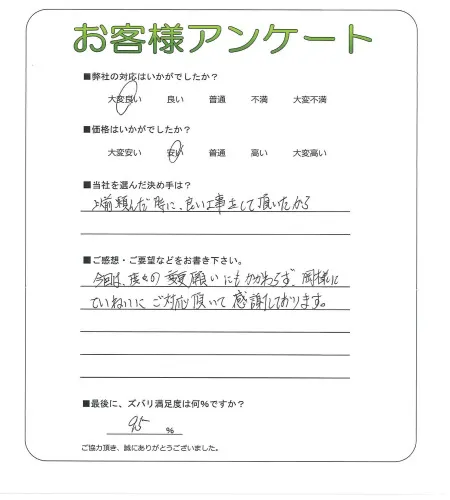 お客様アンケート
■弊社の対応はいかがでしたか?
大変良い 良い 普通 不満 大変不満
■価格はいかがでしたか?
大変安い 安い 普通 高い 大変高い
■当社を選んだ決め手は?
以前頼んだ時に、良い仕事をして頂いたから
■ご感想・ご要望などをお書き下さい。
今回は、度々の変更願いにもかかわらず、同様に
ていねいにご対応頂いて感謝しております。
■最後に、ズバリ満足度は何%ですか?
95 %
ご協力頂き、誠にありがとうございました。